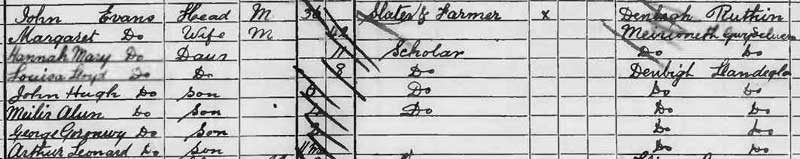 John Evans Head M 36 Slater & Farmer x Denbigh Ruthin
Margaret Do Wife M 42 Merioneth
Hannah Mary Do Daur 11 Scholar Do Do
Louisa Lloyd Do Do 8 Do Denbigh Llandegla
John Hugh Do Son 6 Do Do Do
Meilir Alun Do Son Do Do Do
George Goronwy Do Son Do Do
Arthur Leonard Do Son Do Do